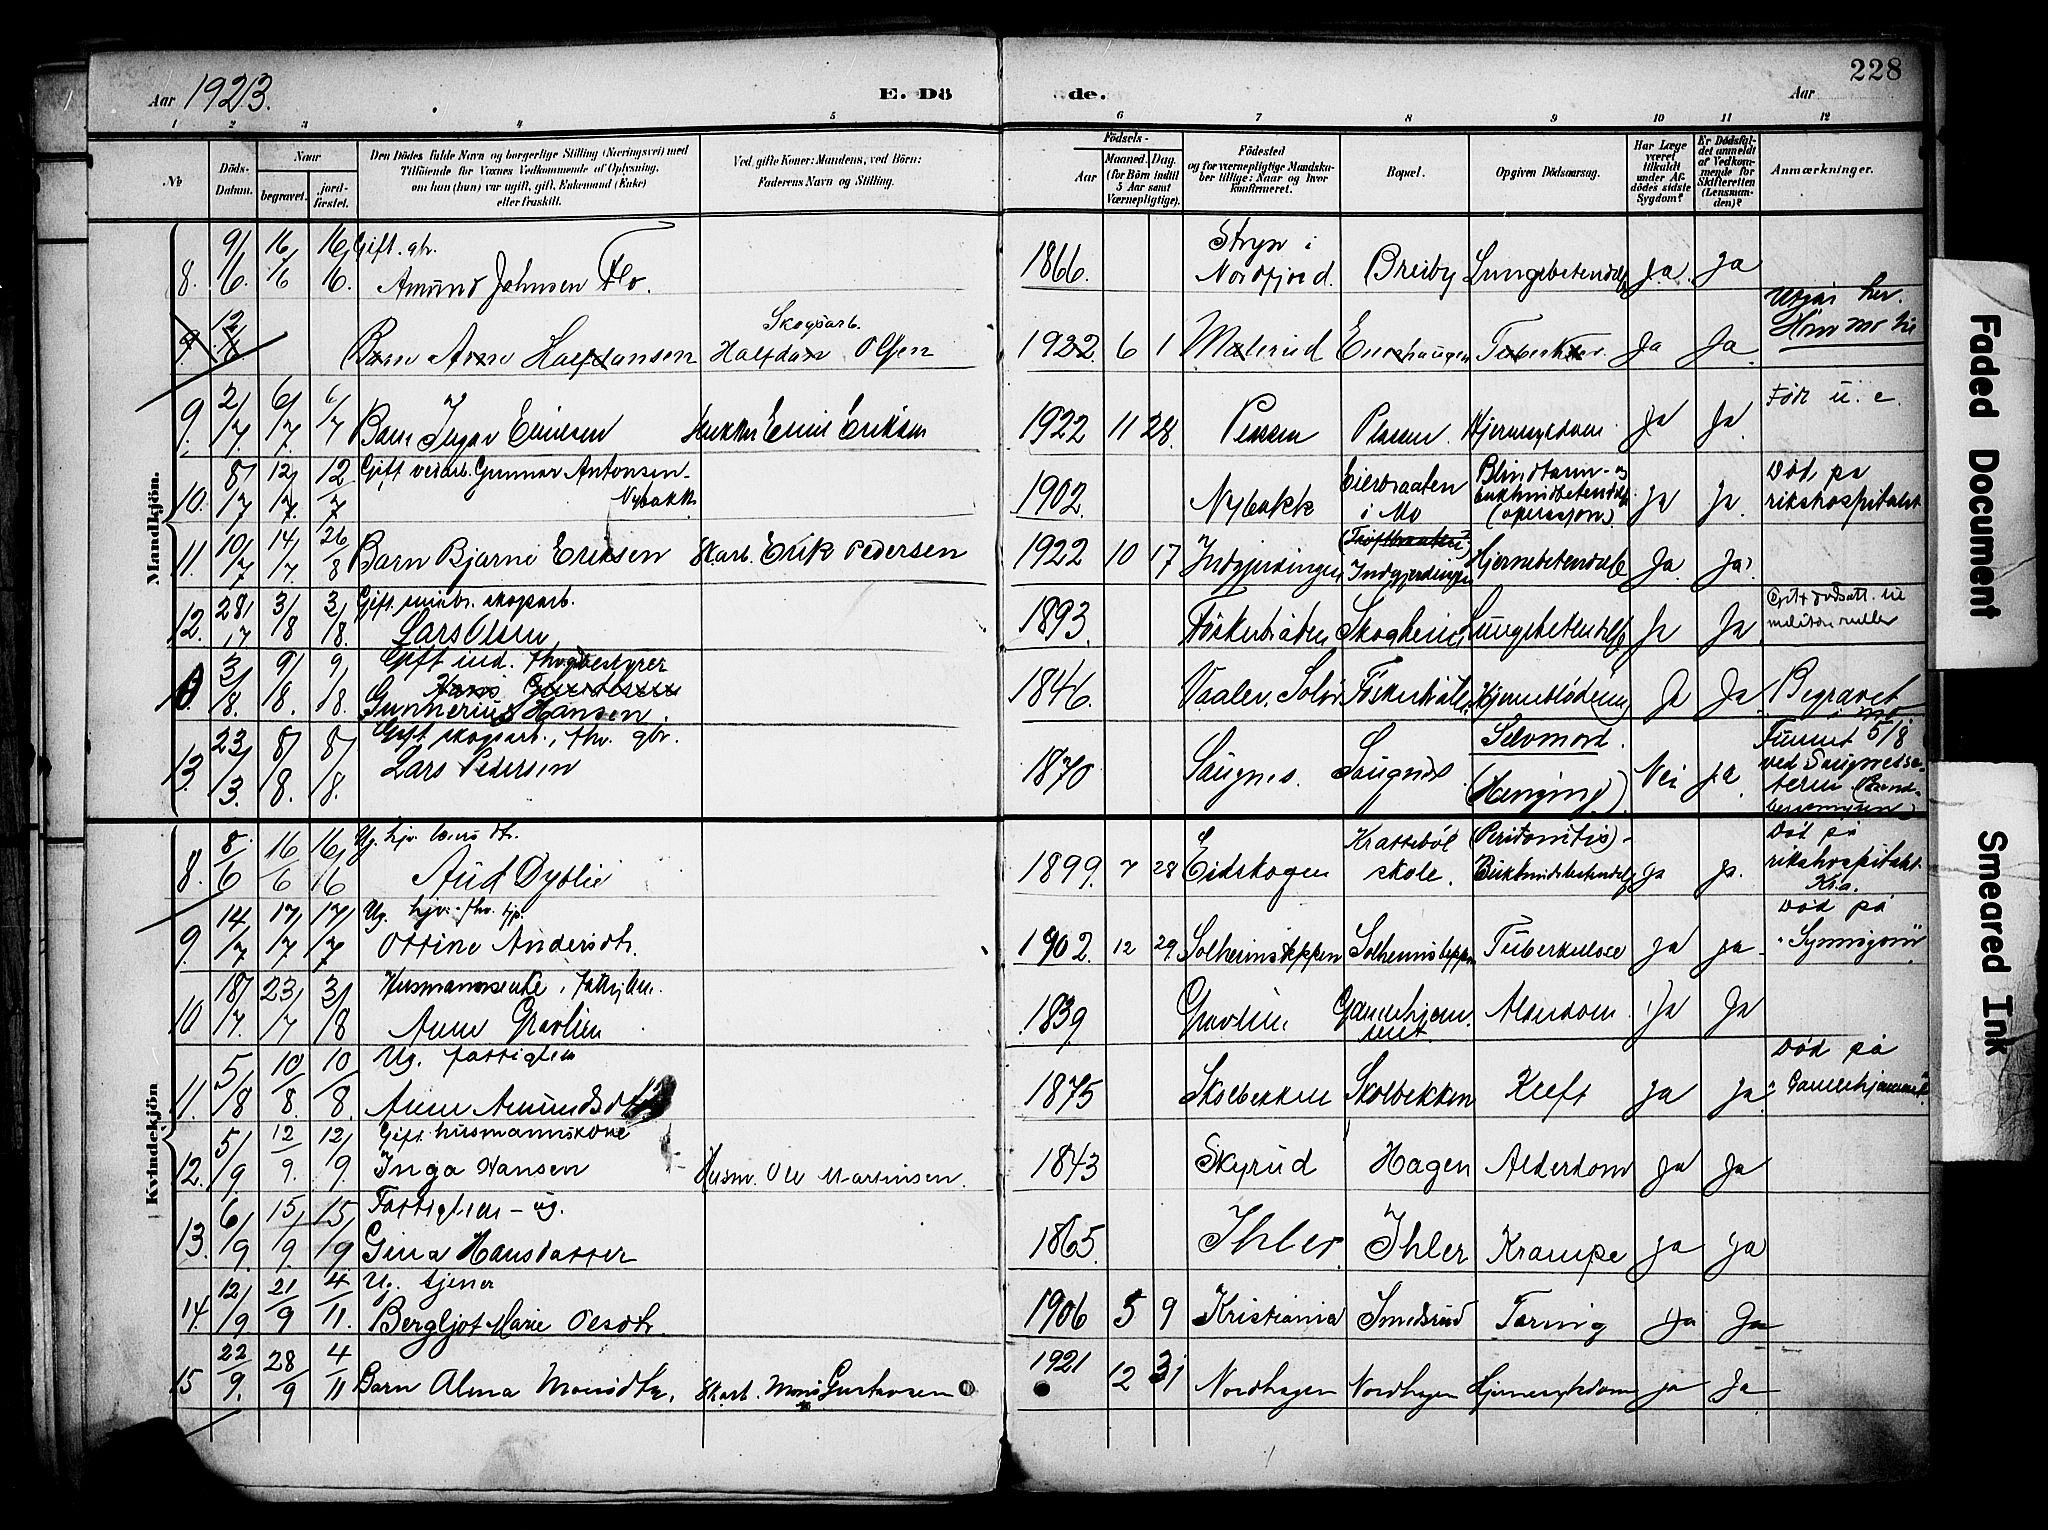 Aar 1923.
E. Döde.
Aar
228
1 2 3 4 5 6 7 8 9 10 11 12
№
Döds-Datum.
Naar
begravet.
jord-fæstet.
Den Dödes fulde Navn og borgerlige Stilling (Næringsvei) med Tilföiende for Voxnes Vedkommende af Oplysning, om han (hun) var ugift, gift, Enkemand (Enke) eller fraskilt.
Ved gifte Koner: Mandens, ved Börn: Faderens Navn og Stilling.
Födsels-
Aar
Maaned. Dag.
(for Börn indtil 5 Aar samt Værnepligtige).
Födested og for værnepligtige Mandskaber tillige: Naar og hvor konfirmeret.
Bopæl.
Opgiven Dödsaarsag.
Har Læge været tilkaldt under Afdödes sidste Sygdom?
Er Dödsfaldet anmeldt af Vedkommende for Skifteretten (Lensmanden)?
Anmærkninger.
Mandkjön.
8. 9/6. 16/6 16/6. Gift. gbr. Amund Johnsen Flo. 1866. Stryn i Nordfjord. Breiby Lungebetendelse Ja. Ja
9. 12/6 Barn Arne Halfdansen Skogsarb. Halfdan Olsen 1922. 6 1 Malerud Tuberkler. Ja Ja. Utgår her.
9. 2/7. 6/7. 6/7 Barn Ingar Einesen Erikssen 1922 11 28. Plassen. Hjernesykdom. Ja Ja. Född u. e.
10. 8/7 12/7. 12/7 Gift verarb. Gunnar Antonsen Nybakk. 1902. Nybakk i Mo Blindtarm- og bukhindebetendelse (operasjon). Ja Ja. Død på rikshospitalet
11. 10/7 14/7. 26/8 Barn Bjarne Eriksen Skarb. Erik Pedersen 1922 10 17 Indgjerdingen Indgjerdingen Hjernebetendelse Ja. Ja.
12. 28/7 3/8 3/8. Gift. skogarb. Lars Olsen 1893. Skogheim Lungebetendelse Ja Ja
3/8. 9/8. 9/8. Gift ind. fhv. gbestyrer Gunnerius Hansen. 1846. Vaaler, Solør Hjerneblødning Ja Ja. Begravet i Mo
13. 23/3. 8/8. 8/8. Gift skogsarb., fhv. gbr. Lars Pedersen 1870 Saugnes. Saugnes Selvmord. (Henging). Nei Ja. Funnet 5/8 ved
Kvindekjön
8. 8/6 16/6 16/6 Ug. hjv. Aud Dyblie 1899. 7 28 Eidskogen Krattebøl skole. (Peritonitis)- Bukhindebetendelse Ja Ja. Død på rikshospitalet Kra.
9. 14/7 17/7 17/7 Ug. hjv. fhv. tjp. Ottine Andersdtr. 1902. 12 29. Solheimsteppen Solheimsteppen Tuberkulose Ja Ja. Død på
10 18/7. 23/7 3/8 Husmannsenke, fattiglem. Anne Gravlien 1839. Gravlien Gamlehjemmet. Alderdom Ja Ja
11. 5/8 10/8. 10/8. Ug. fattiglem Anne Amundsdtr. 1875 Skolbekken Skolbekken Kreft Ja Ja. Død på Gamlehjemmet.
12. 5/9. 12/9. 12/9. Gift. husmannskone Inga Hansen Husm. Ole Martinsen. 1843 Skyrud Hagen Alderdom Ja Ja
13. 6/9. 15/9. 15/9 Fattiglem - ug. Gina Hansdatter 1865. Ihler. Ihler Krampe Ja Ja
14. 12/9. 21/9 4/11. Ug. tjener Bergljot Marie Olsdtr. 1906 5 9 Kristiania Smedsrud Tæring Ja Ja
15 22/9. 28/9 4/11 Barn Alma Monsdtr. Skarb. Mons Gustavsen 1921 12 31 Nordhagen Nordhagen Hjernesykdom Ja Ja
Faded Document
Smeared Ink